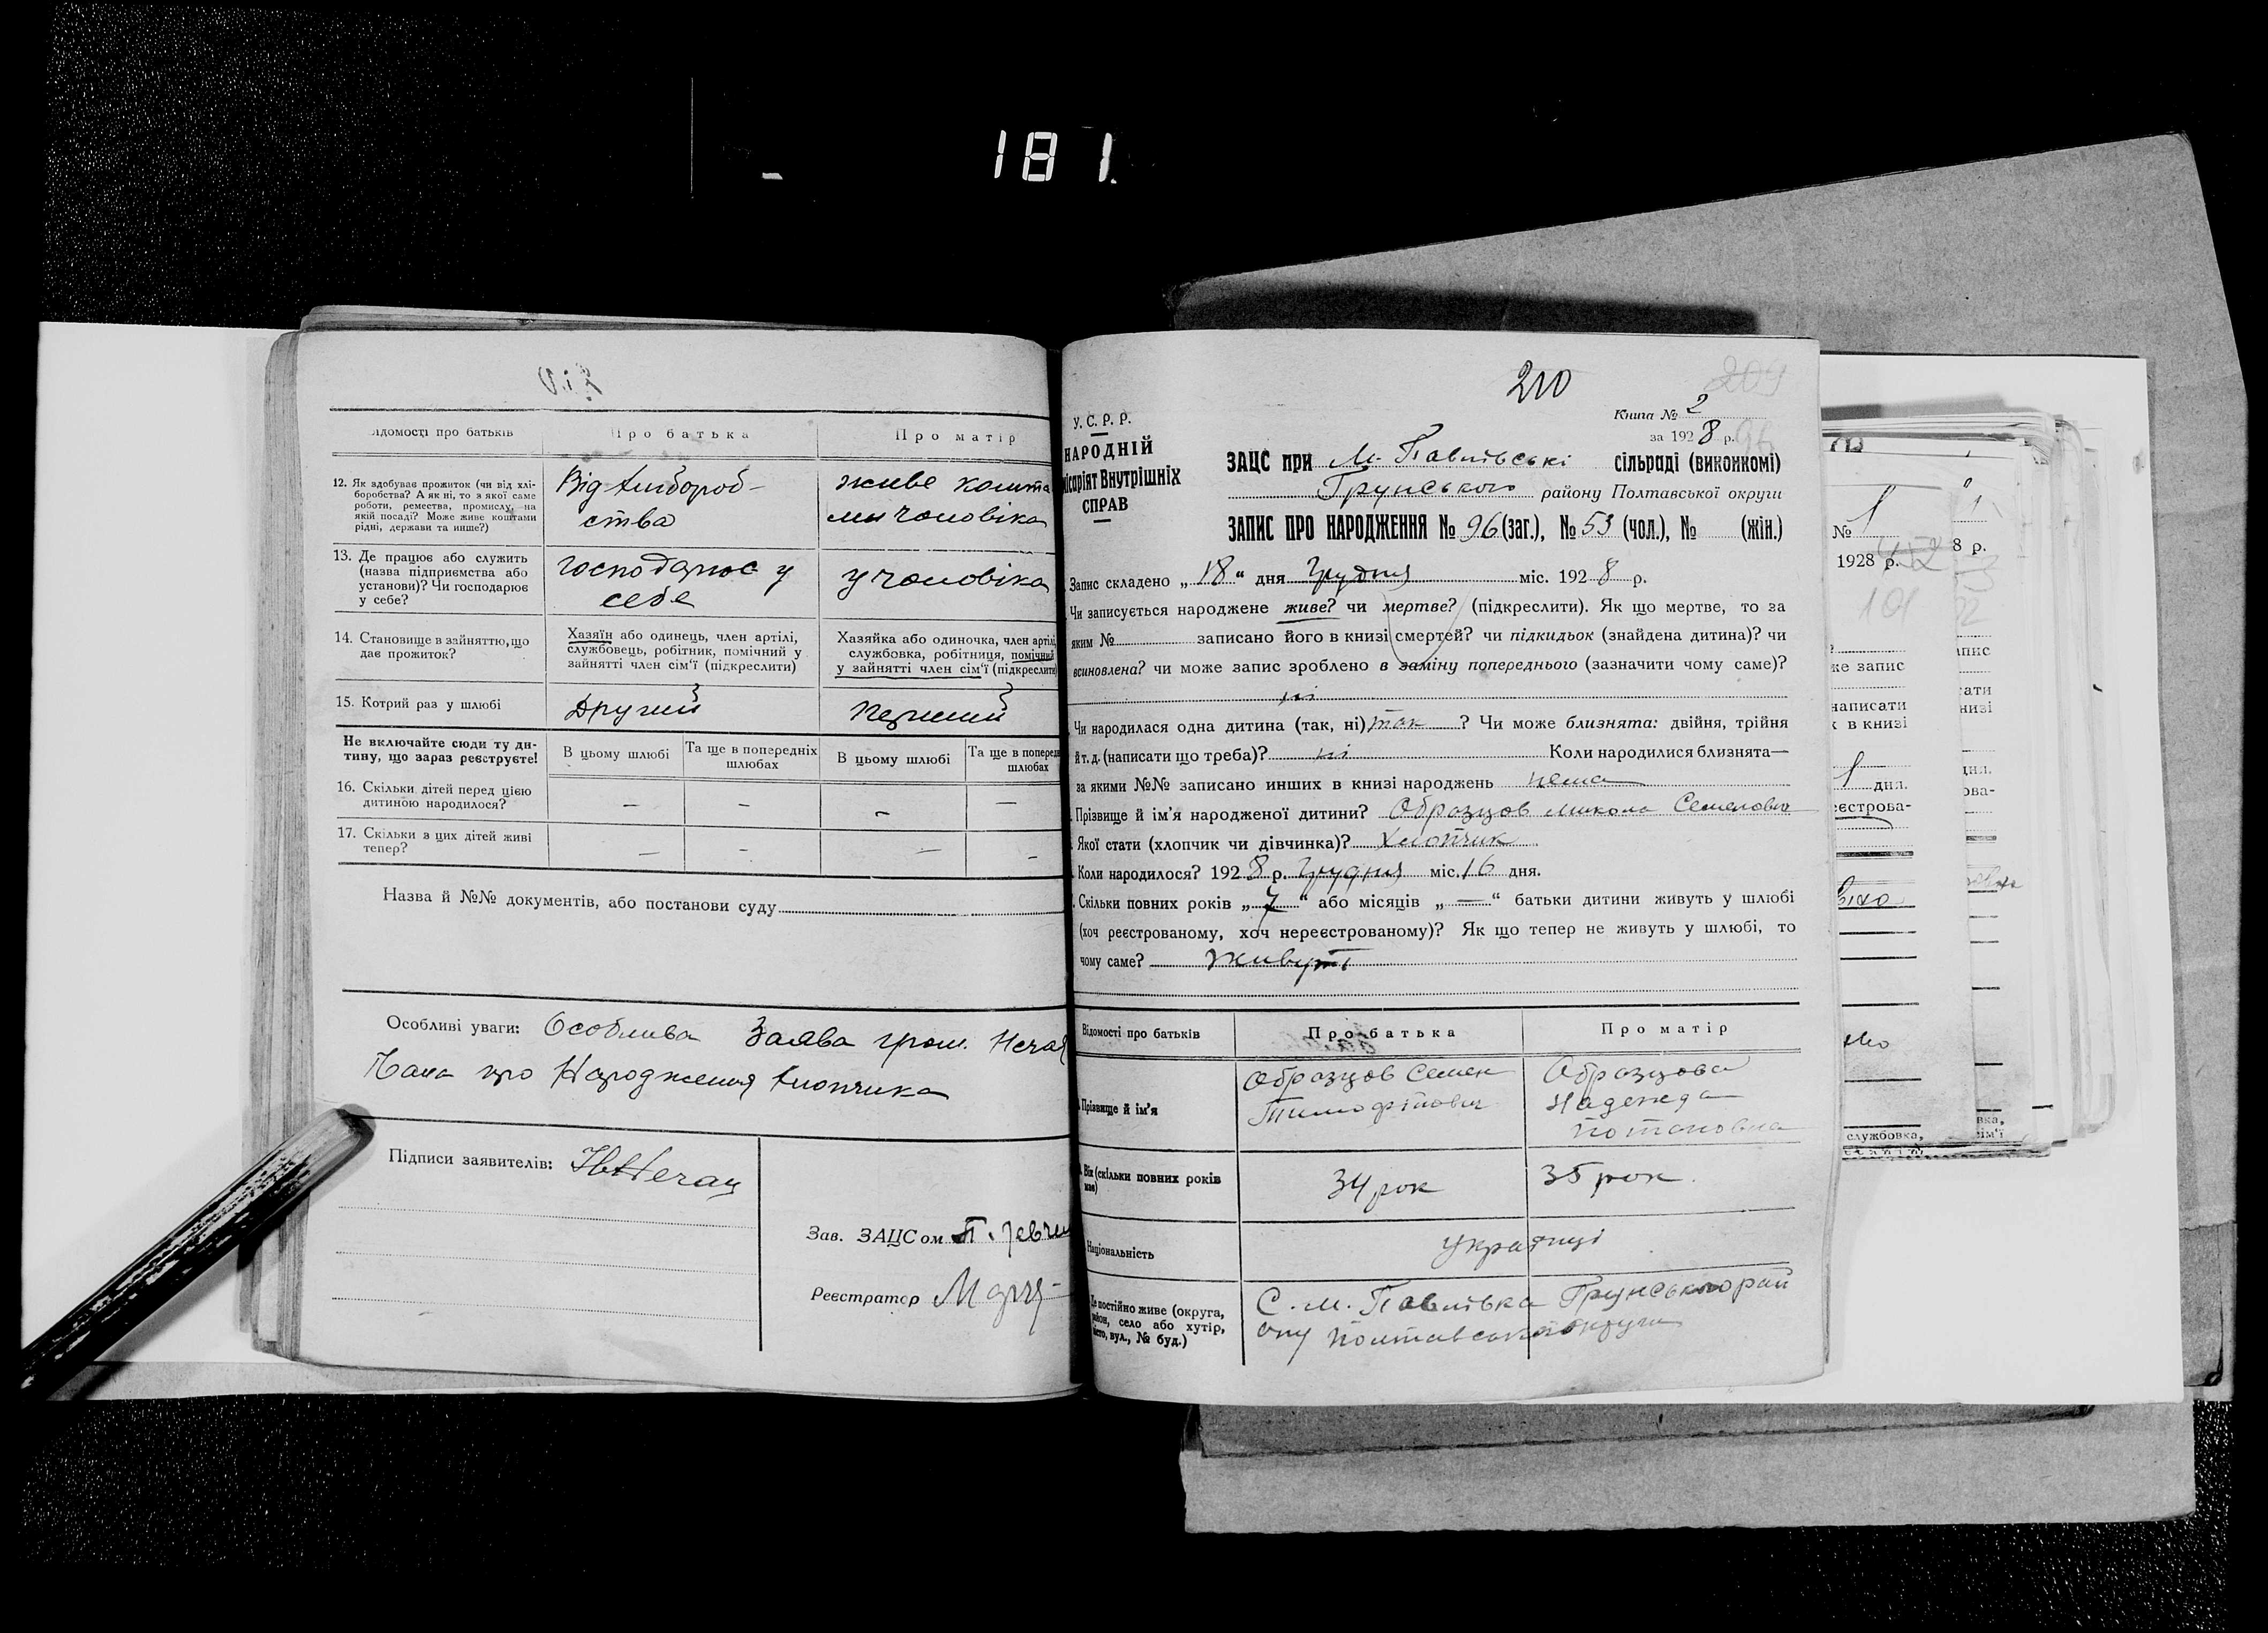 181.
Відомості про батьків
Про батька
Про матір
12. Як здобуває прожиток (чи від хлі-
боробства? А як ні, то з якої саме
роботи, ремества, промислу, на
якій посаді? Може живе коштами
рідні, держави та инше?)
Від хлібороб-
ства
живе кошта
ми чоловіка
13. Де працює або служить
(назва підприємства або
установи)? Чи господарює
у себе?
господарює у
себе
у чоловіка
14. Становище в зайняттю, що
дає прожиток?
Хазяїн або одинець, член артілі,
службовець, робітник, помічний у
зайнятті член сім'ї (підкреслити)
Хазяйка або одиночка, член артілі,
службовка, робітниця, помічний
у зайнятті член сім'ї (підкреслити)
15. Котрий раз у шлюбі
Другий
перший
Не включайте сюди ту ди-
тину, що зараз реєструєте!
В цьому шлюбі
Та ще в попередніх
шлюбах
В цьому шлюбі
Та ще в поперед
шлюбах
16. Скільки дітей перед цією
дитиною народилося?
— — — —
17. Скільки з цих дітей живі
тепер?
— — — —
Назва й №№ документів, або постанови суду
Особливі уваги: Особлива Заява гром. Нечая
про Народження хлопчика
Підписи заявителів: Нечай
Зав. ЗАЦСом П.
Реєстратор
210
209
Книга № 2
за 1928 р.
У. С. Р. Р.
НАРОДНІЙ
місаріят Внутрішніх
СПРАВ
ЗАЦС при М. Павлівські сільраді (виконкомі)
Грунського району Полтавської округи
ЗАПИС ПРО НАРОДЖЕННЯ № 96 (заг.), № 53 (чол.), № (жін.)
Запис складено „18“ дня Грудня міс. 1928 р.
Чи записується народжене живе? чи мертве? (підкреслити). Як що мертве, то за
яким № записано його в книзі смертей? чи підкидьок (знайдена дитина)? чи
всиновлена? чи може запис зроблено в заміну попереднього (зазначити чому саме)?
ні
Чи народилася одна дитина (так, ні) так ? Чи може близнята: двійня, трійня
й т. д. (написати що треба)? ні Коли народилися близнята—
за якими №№ записано инших в книзі народжень нема
Прізвище й ім'я народженої дитини? Образцов Микола Семенович
Якої стати (хлопчик чи дівчинка)? Хлопчик
Коли народилося? 1928 р. Грудня міс. 16 дня.
Скільки повних років „7“ або місяців „—“ батьки дитини живуть у шлюбі
(хоч реєстрованому, хоч нереєстрованому)? Як що тепер не живуть у шлюбі, то
чому саме? живуть
Відомості про батьків
Про батька
Про матір
Прізвище й ім'я
Образцов Семен
Тимофійович
Образцова
Надежда
Потаповна
Вік (скільки повних років
має)
34 рок
35 рок.
Національність
Українці
Де постійно живе (округа,
район, село або хутір,
місто, вул., № буд.)
С. М. Павлівка Грунського рай
ону Полтавської округи
№ 1
1928 р.
8 р.
101
же запис
написати
к в книзі
1 дня.
еєстрова-
службовка,